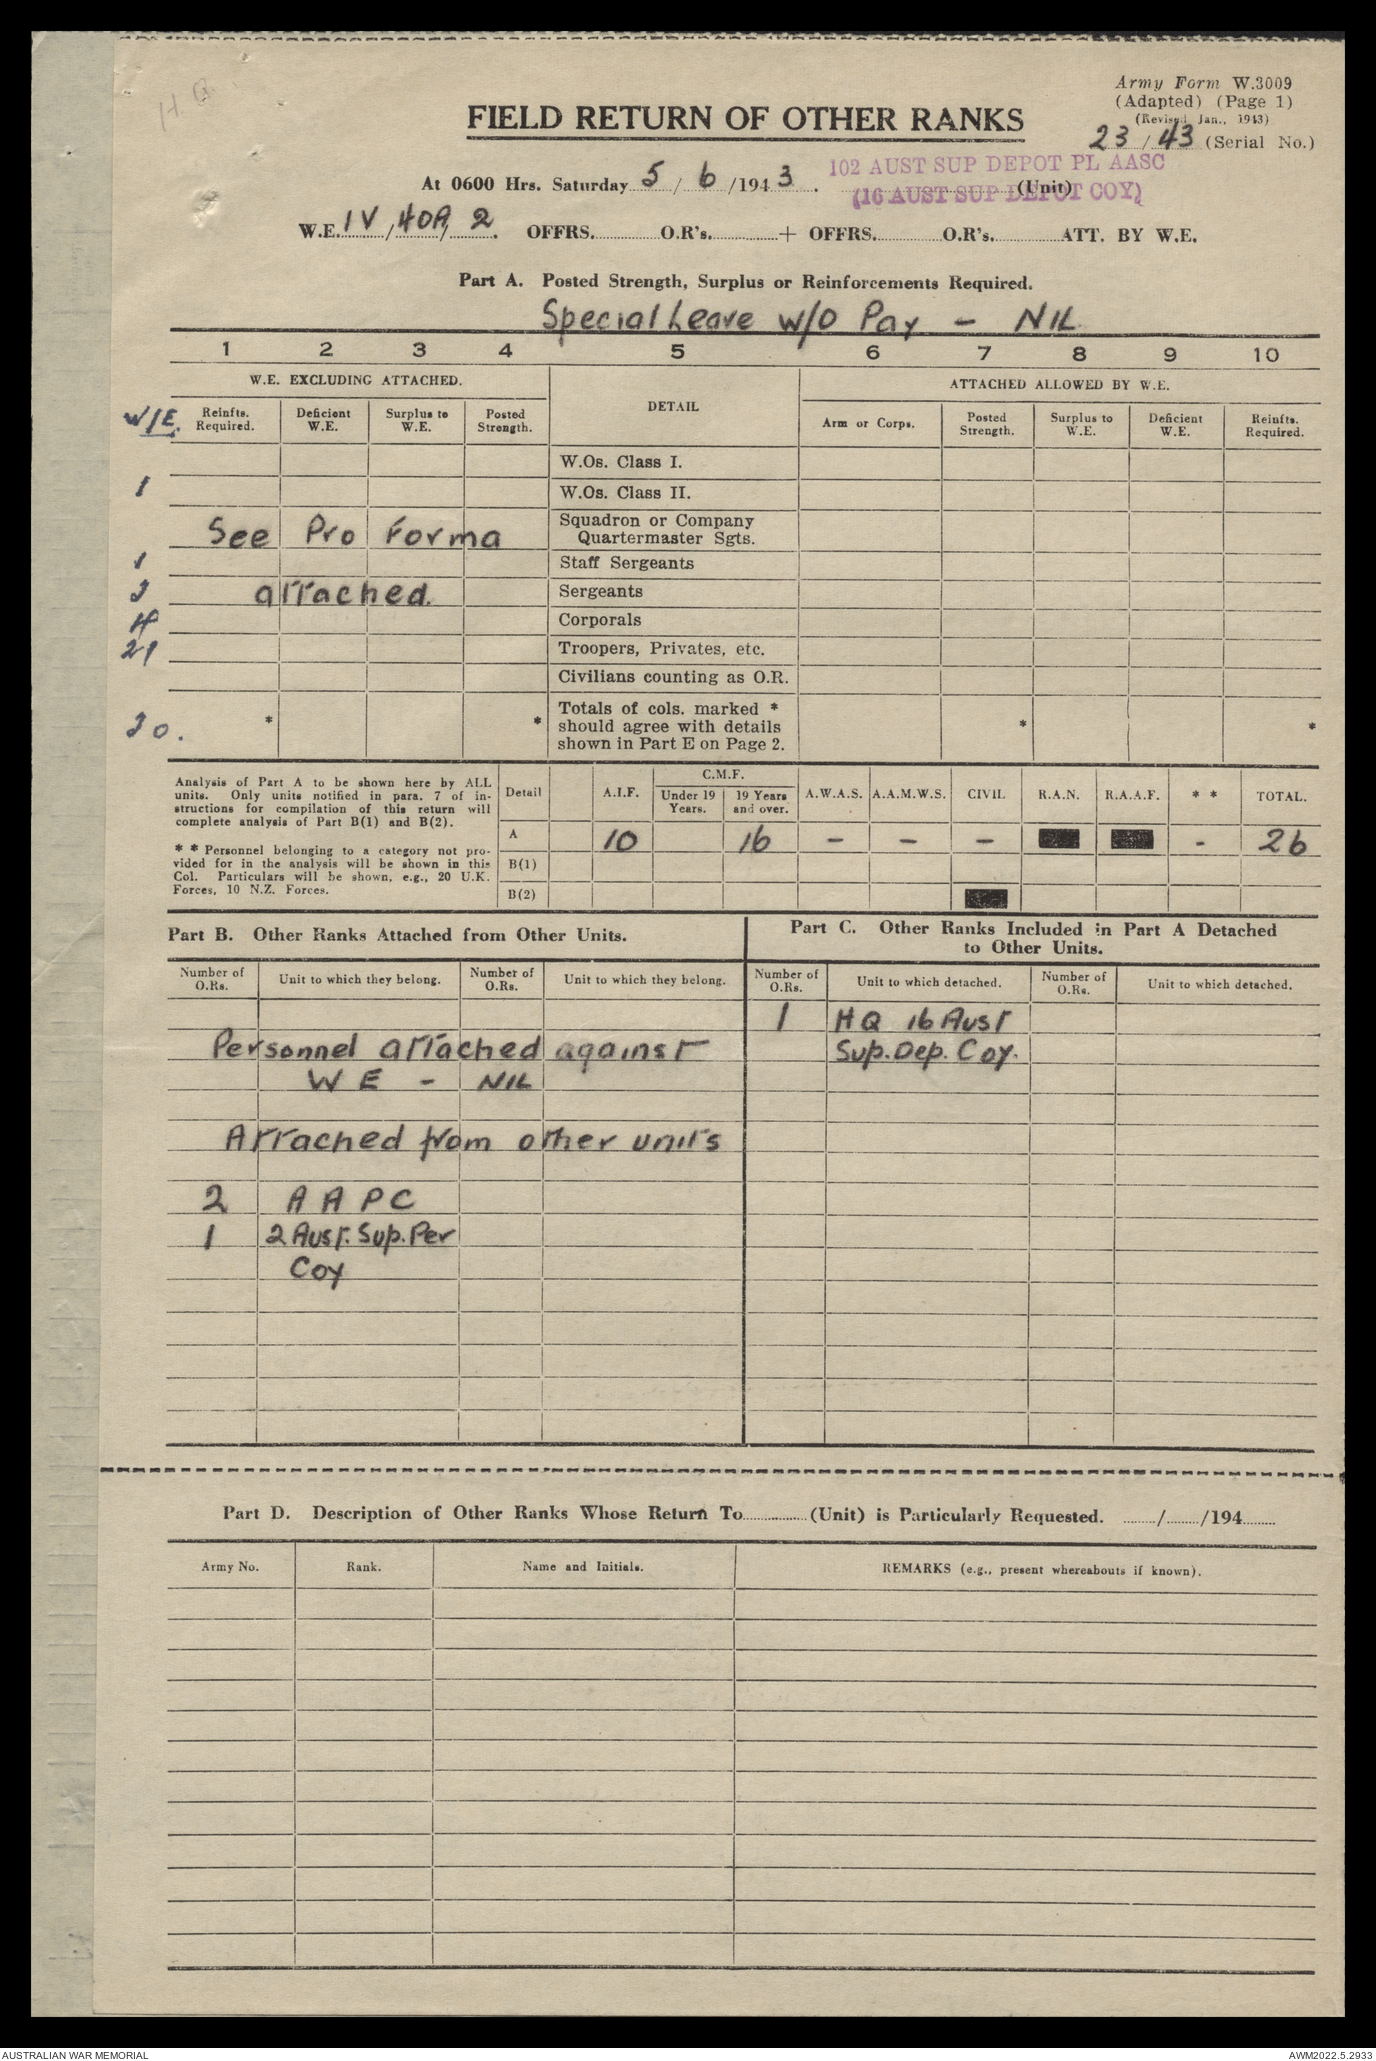 H Q
Army Form W.3009
(Adapted) (Page 1)
(Revised Jan., 1943)
FIELD RETURN OF OTHER RANKS
23 / 43 (Serial No.)
102 AUST SUP DEPOT PL AASC
At 0600 Hrs. Saturday 5 / 6 /194 3 . (Unit)
(16 AUST SUP DEPOT COY)
W.E. IV / 40A / 2 . OFFRS. O.R's. + OFFRS. O.R's. ATT. BY W.E.
Part A. Posted Strength, Surplus or Reinforcements Required.
Special Leave w/o Pay - NIL
1 2 3 4 5 6 7 8 9 10
W.E. EXCLUDING ATTACHED. DETAIL ATTACHED ALLOWED BY W.E.
W/E. Reinfts. Required. Deficient W.E. Surplus to W.E. Posted Strength. Arm or Corps. Posted Strength. Surplus to W.E. Deficient W.E. Reinfts. Required.
W.Os. Class I.
1 W.Os. Class II.
See Pro Forma Squadron or Company
Quartermaster Sgts.
1 Staff Sergeants
3 attached. Sergeants
4 Corporals
21 Troopers, Privates, etc.
Civilians counting as O.R.
30. * * Totals of cols. marked * * *
should agree with details
shown in Part E on Page 2.
Analysis of Part A to be shown here by ALL
units. Only units notified in para. 7 of in-
structions for compilation of this return will
complete analysis of Part B(1) and B(2).
* * Personnel belonging to a category not pro-
vided for in the analysis will be shown in this
Col. Particulars will be shown, e.g., 20 U.K.
Forces, 10 N.Z. Forces.
C.M.F.
Detail A.I.F. Under 19 Years. 19 Years and over. A.W.A.S. A.A.M.W.S. CIVIL R.A.N. R.A.A.F. * * TOTAL.
A 10 16 - - - - 26
B(1)
B(2)
Part B. Other Ranks Attached from Other Units.
Number of O.Rs. Unit to which they belong. Number of O.Rs. Unit to which they belong.
Personnel attached against
W E - NIL
Attached from other units
2 A A P C
1 2 Aust. Sup. Per
Coy
Part C. Other Ranks Included in Part A Detached
to Other Units.
Number of O.Rs. Unit to which detached. Number of O.Rs. Unit to which detached.
1 HQ 16 Aust
Sup. Dep. Coy.
Part D. Description of Other Ranks Whose Return To (Unit) is Particularly Requested. / /194
Army No. Rank. Name and Initials. REMARKS (e.g., present whereabouts if known).
AUSTRALIAN WAR MEMORIAL
AWM2022.5.2933